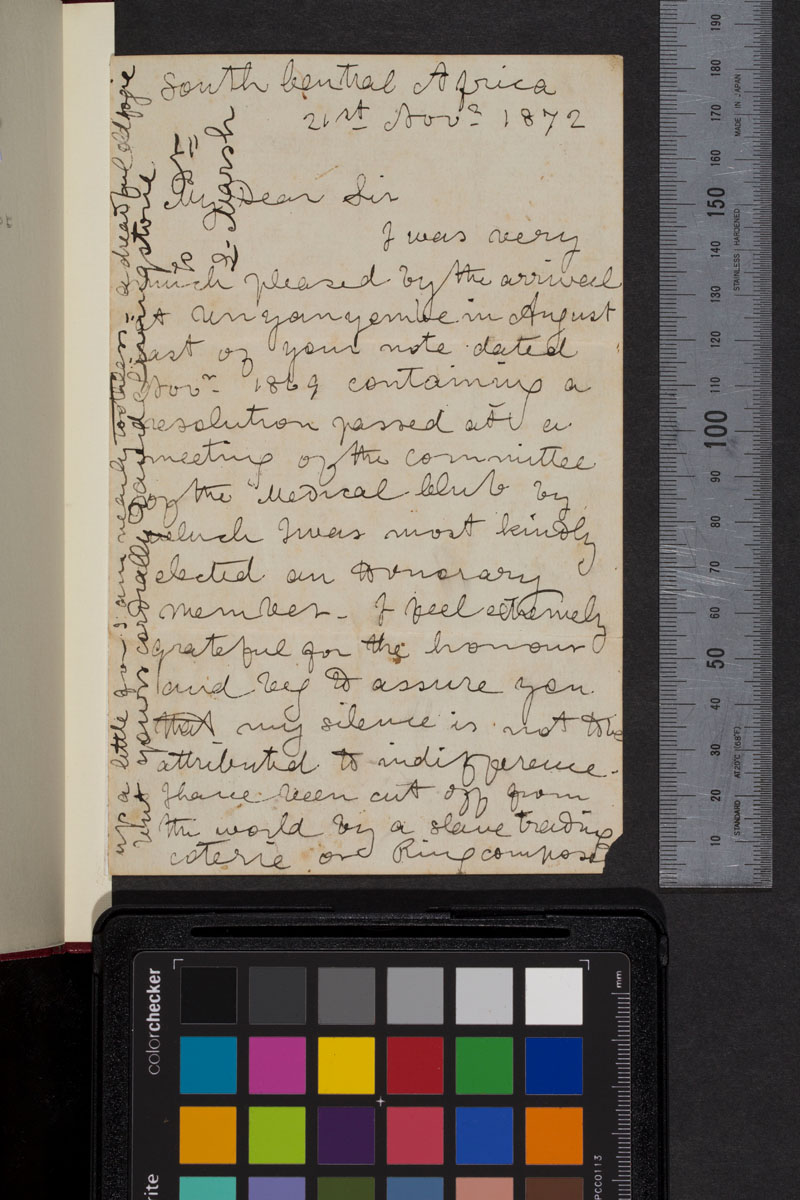 South Central Africa
21st Novr 1872
My Dear Sir
I was very
much pleased by the arrival
at Unyanyembe in August
last of your note dated
Novr 1869 containing a
resolution passed at a
meeting of the committee
of the Medical Club by
which I was most kindly
elected an Honorary
member - I feel extremely
grateful for the honour
and beg to assure you
that my silence is not to be
attributed to indifference -
I have been cut off from
the world by a slave trading
coterie or Ring composed
To Dr
J. Marsh
up a little for I am nearly toothless - a dreadful old fogie
but yours cordially David Livingstone
190
180
170
160
150
140
130
120
110
100
90
80
70
60
50
40
30
20
10
MADE IN JAPAN
STAINLESS HARDENED
STANDARD AT 20°C (68°F)
mm
colorchecker
rite